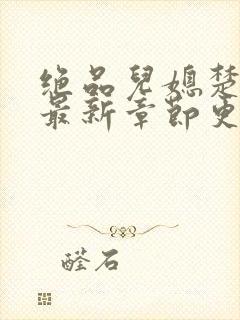 绝品兒媳楚
最新章節更
醛石